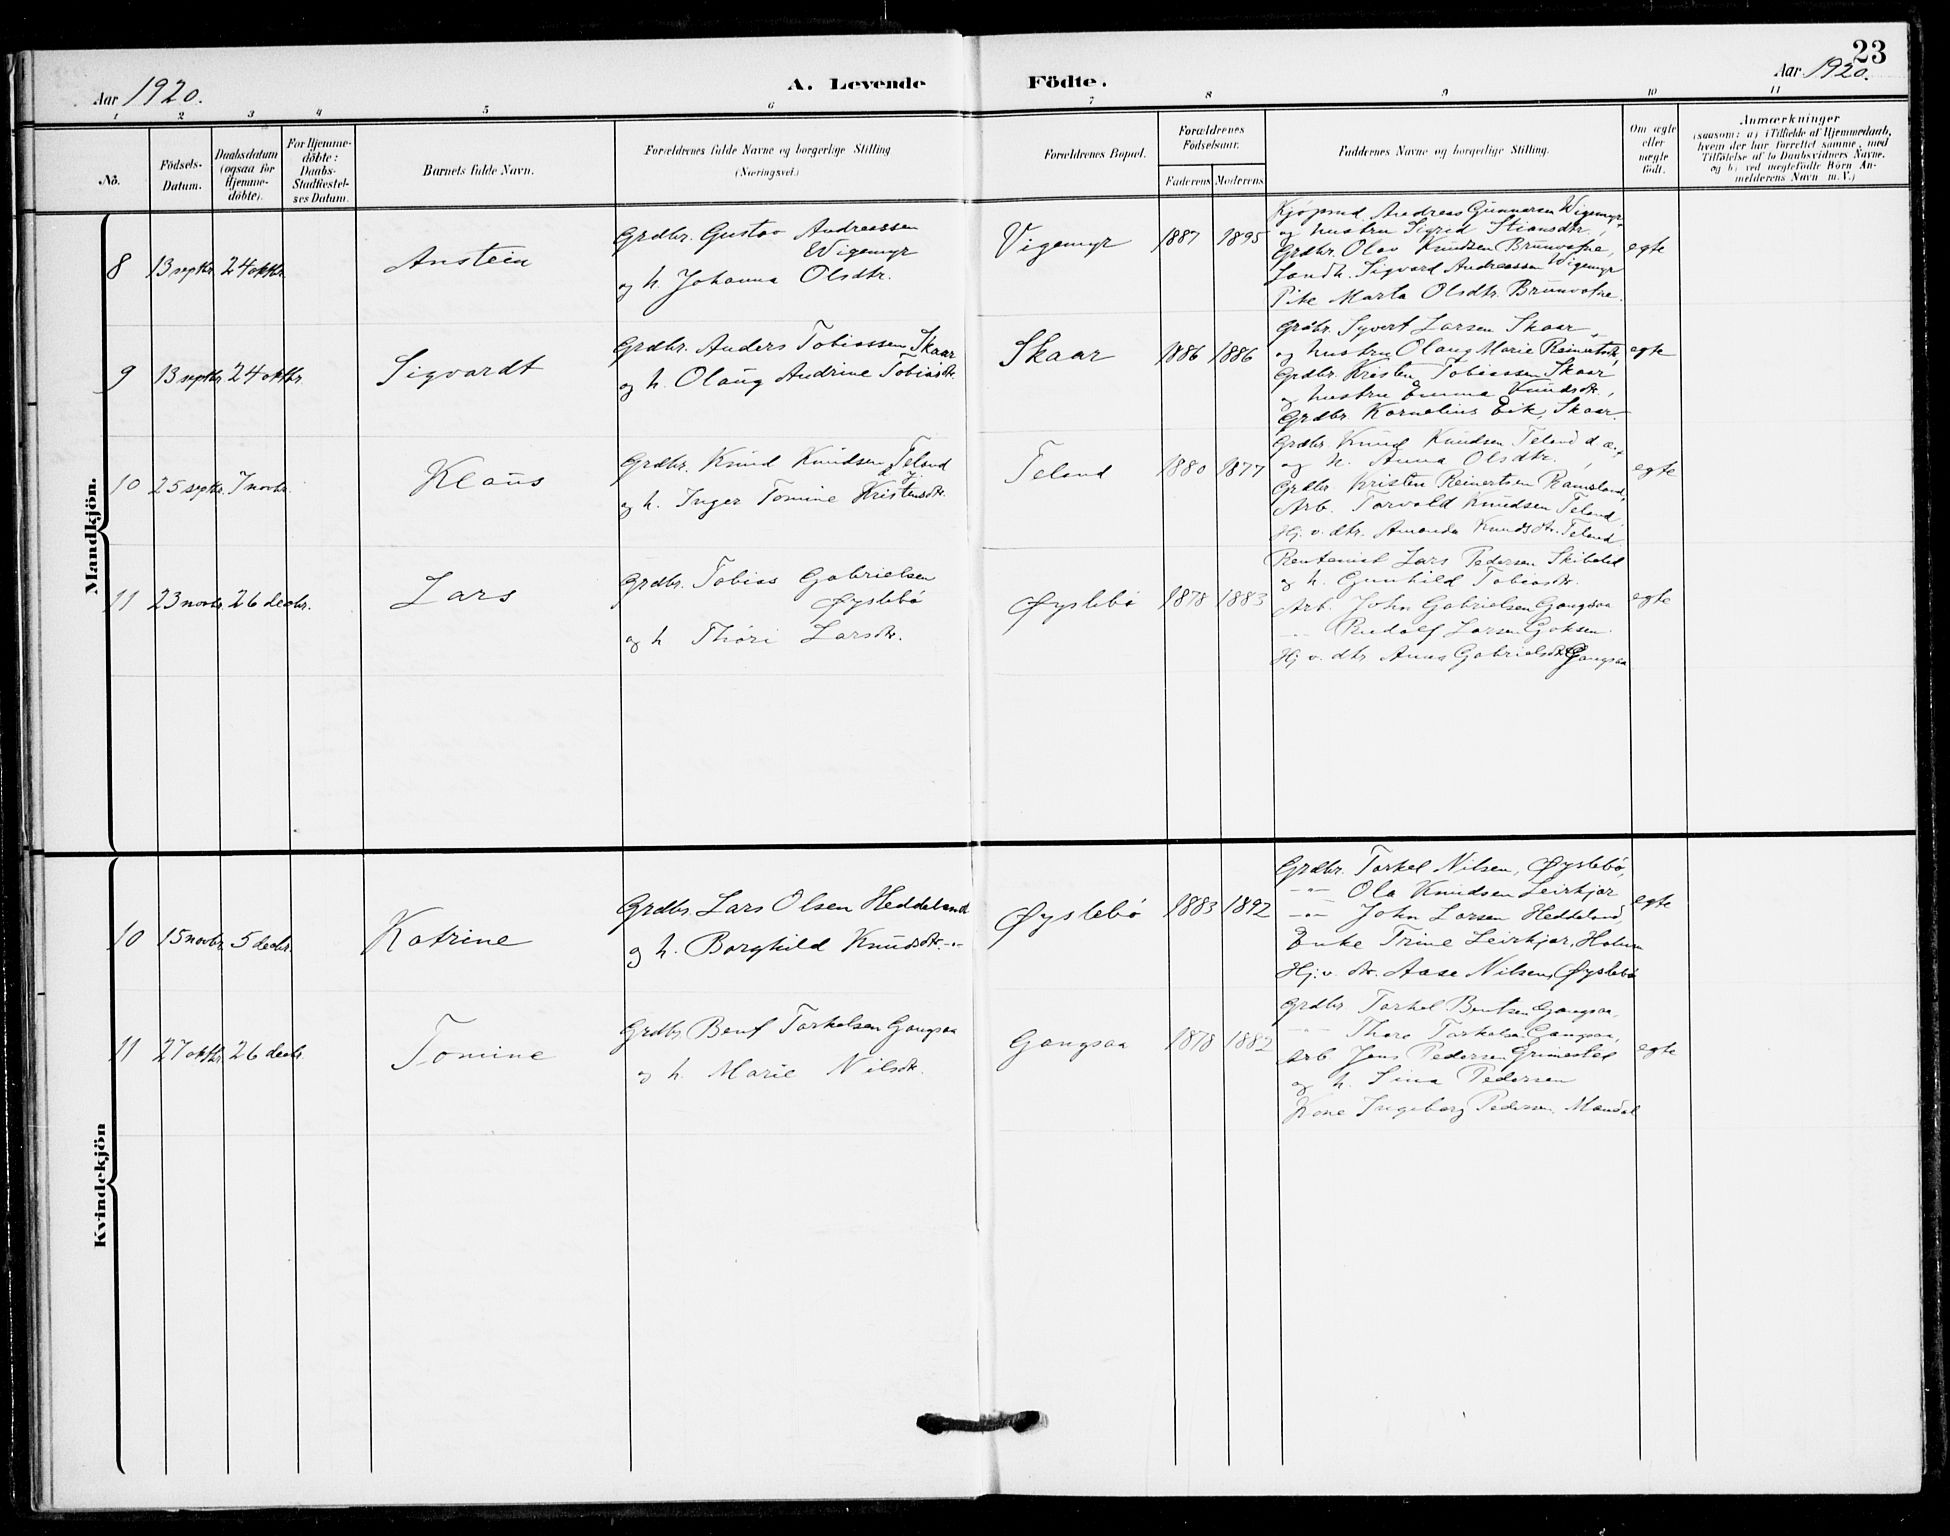 23
Aar 1920.
A. Levende Födte.
Aar 1920.
1 2 3 4 5 6 7 8 9 10 11
No.
Födsels-
Datum.
Daabsdatum
(ogsaa for
Hjemme-
döbte).
For Hjemme-
döbte:
Daabs-
Stadfæstel-
ses Datum.
Barnets fulde Navn.
Forældrenes fulde Navne og borgerlige Stilling
(Næringsvei.)
Forældrenes Bopæl.
Forældrenes
Födselsaar.
Faderens Moderens
Faddernes Navne og borgerlige Stilling.
Om ægte
eller
uægte
födt.
Anmærkninger
(saasom: a) i Tilfælde af Hjemmedaab,
hvem der har forrettet samme, med
Tilföielse af to Daabsvidners Navne.
og b) ved uægtefödte Börn An-
melderens Navn m. V.)
Mandkjön.
8 13 septbr. 24 oktbr.
Anstein
Grdbr. Gustav Andreassen
Wigemyr
og h. Johanna Olsdtr.
Vigemyr
1887 1895
Kjøpmd. Andreas Gunnarsen Wigemyr
og hustru Sigrid Stiansdtr.,
Grdbr. Olav Knudsen Brunvatne,
Landh. Sigvard Andreassen Wigemyr
Pike Marta Olsdtr. Brunvatne.
egte
9 13 septbr. 24 oktbr.
Sigvardt
Grdbr. Anders Tobiassen Skaar
og h. Olaug Andrine Tobiasdtr.
Skaar
1886 1886
Grdbr. Syvert Larsen Skaar
og hustru Olaug Marie Reinertsdtr,
Grdbr. Kristen Tobiassen Skaar
og hustru Emma Knudsdtr.,
Grdbr. Kornelius Eik, Skaar.
egte
10 25 septbr. 7 novbr.
Klaus
Grdbr. Knud Knudsen Teland
d. y.
og h. Inger Tomine Kristensdtr.
Teland
1880 1877
Grdbr. Knud Knudsen Teland d. æ.
og h. Anna Olsdtr.,
Grdbr. Kristen Reinertsen Ramsland,
Arb. Torvald Knudsen Teland,
Hj. v. dtr. Amanda Knudsdtr. Teland.
egte
11 23 novbr. 26 decbr.
Lars
Grdbr. Tobias Gabrielsen
Øyslebø
og h Thori Larsdtr.
Øyslebø
1878 1883
Rentenist Lars Pedersen Skibsted
og h. Gunhild Tobiasdtr.
Arb. John Gabrielsen Gangsaa
-"- Rudolf Larsen Goksem.
Hj. v. dtr Anna Gabrielsdtr Gangsaa
egte
Kvindekjön
10 15 novbr 5 decbr.
Katrine
Grdbr. Lars Olsen Heddeland
og h. Borghild Knudsdtr. -"-
Øyslebø
1883 1892
Grdbr. Torkel Nilsen, Øyslebø,
-"- Ola Knudsen Leirkjær,
-"- John Larsen Heddeland,
Enke Trine Leirkjær, Holum
Hj. v. dtr. Aase Nilsen, Øyslebø
egte
11 27 oktbr. 26 decbr.
Tomine
Grdbr. Bent Torkelsen Gangsaa
og h. Marie Nilsdtr.
Gangsaa
1878 1882
Grdbr. Torkel Bentsen Gangsaa,
-"- Thore Torkelsen Gangsaa,
Arb. Jens Pedersen Grimestad
og h. Sina Pedersen
Kone Ingeborg Pedersen, Mandal
egte